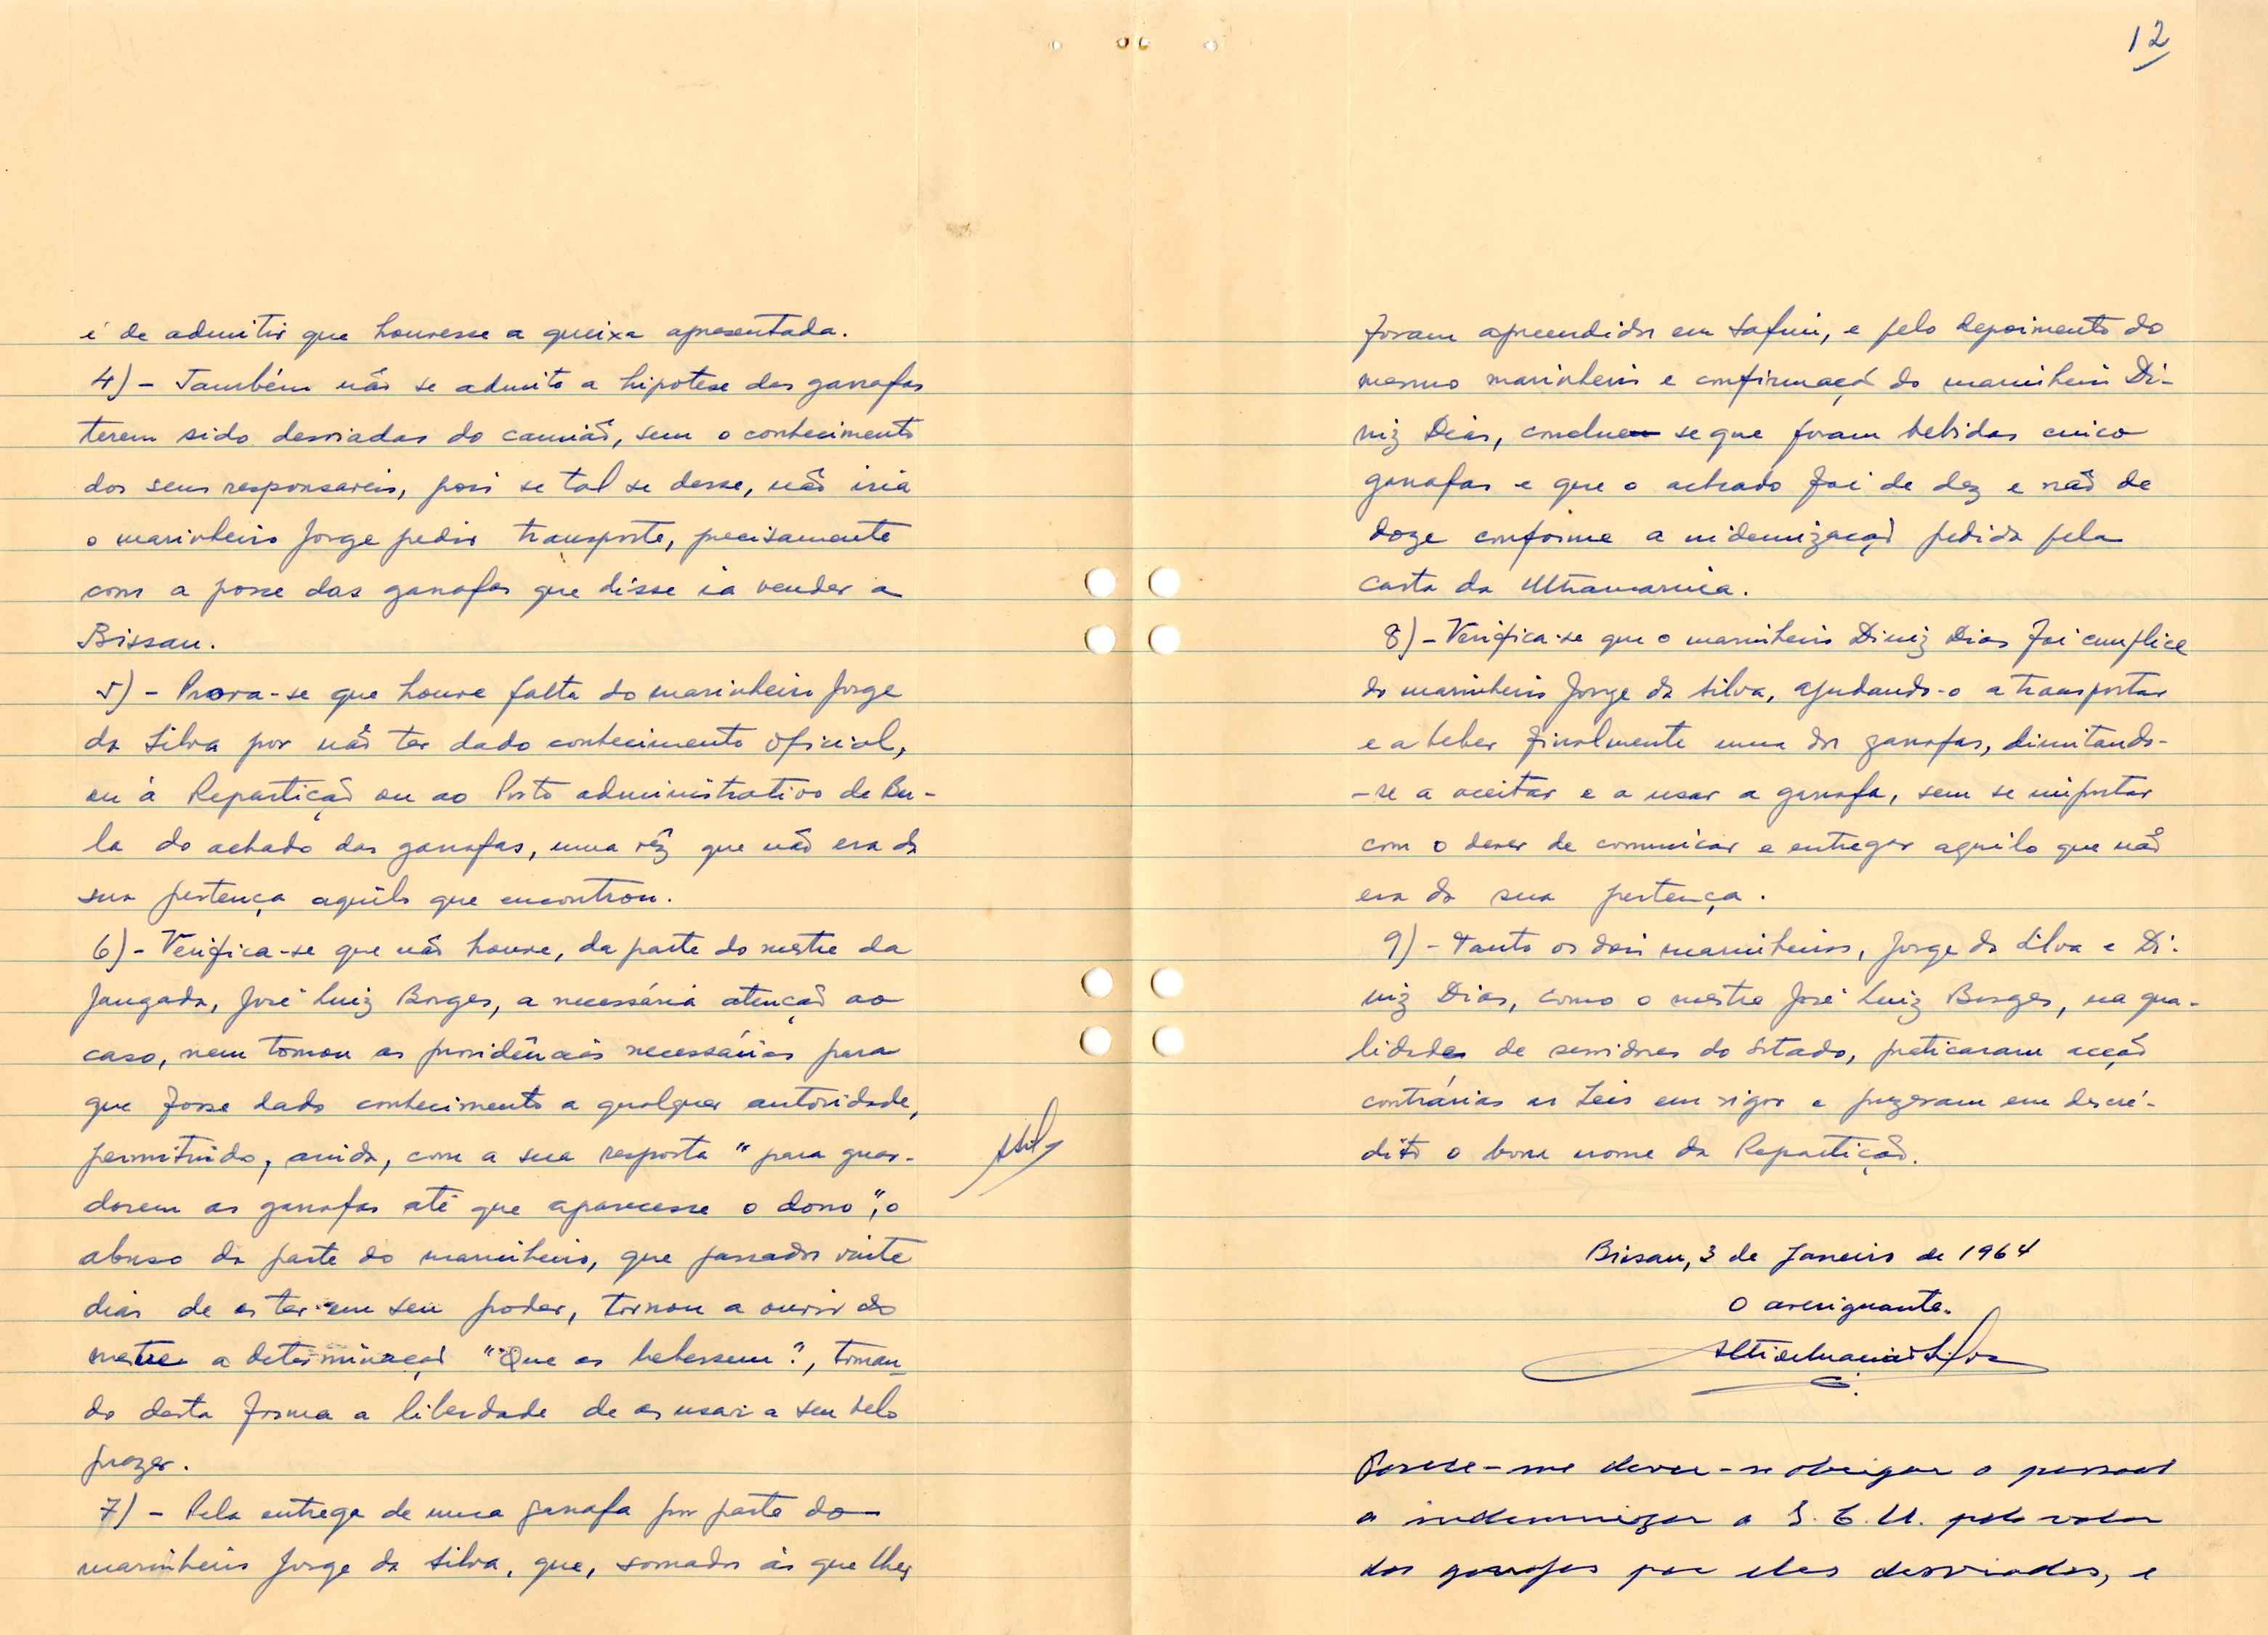 é de admitir que houvesse a queixa apresentada.
4) - Também não se admite a hipotese das garrafas
terem sido desviadas do camião, sem o conhecimento
dos seus responsaveis, pois se tal se desse, não iria
o marinheiro Jorge pedir transporte, precisamente
com a posse das garrafas que disse ia vender a
Bissau.
5) - Prova-se que houve falta do marinheiro Jorge
da Silva por não ter dado conhecimento oficial,
ou à Repartição ou ao Posto administrativo de Bu-
la do achado das garrafas, uma vêz que não era da
sua pertença aquilo que encontrou.
6) - Verifica-se que não houve, da parte do mestre da
Jangada, José Luiz Borges, a necessária atenção ao
caso, nem tomou as providências necessárias para
que fosse dado conhecimento a qualquer autoridade,
permitindo, ainda, com a sua resposta "para guar-
darem as garrafas até que aparecesse o dono", o
abuso da parte do marinheiro, que passados vinte
dias de as ter em seu poder, tornou a ouvir do
mestre a determinação "Que as bebessem", toman-
do desta forma a liberdade de as usar a seu belo
prazer.
7) - Pela entrega de uma garrafa por parte do
marinheiro Jorge da Silva, que, somados às que lhes
12
foram apreendidas em Safim, e pelo depoimento do
mesmo marinheiro e confirmação do marinheiro Di-
niz Dias, conclue se que foram bebidas cinco
garrafas e que o achado foi de dez e não de
doze conforme a indemnização pedida pela
carta da Ultramarina.
8) - Verifica-se que o marinheiro Diniz Dias foi cumplice
do marinheiro Jorge da Silva, ajudando-o a transportar
e a beber finalmente uma das garrafas, limitando-
-se a aceitar e a usar a garrafa, sem se importar
com o dever de comunicar e entregar aquilo que não
era da sua pertença.
9) - Tanto os dois marinheiros, Jorge da Silva e Di-
niz Dias, como o mestre José Luiz Borges, na qua-
lidade de servidores do Estado, praticaram acção
contrárias as Leis em vigor e puzeram em descré-
dito o bom nome da Repartição.
Bissau, 3 de Janeiro de 1964
O averiguante.
Parece-me dever-se obrigar o pessoal
a indemnizar a S.C.U. pelo valor
das garrafas por eles desviadas, e